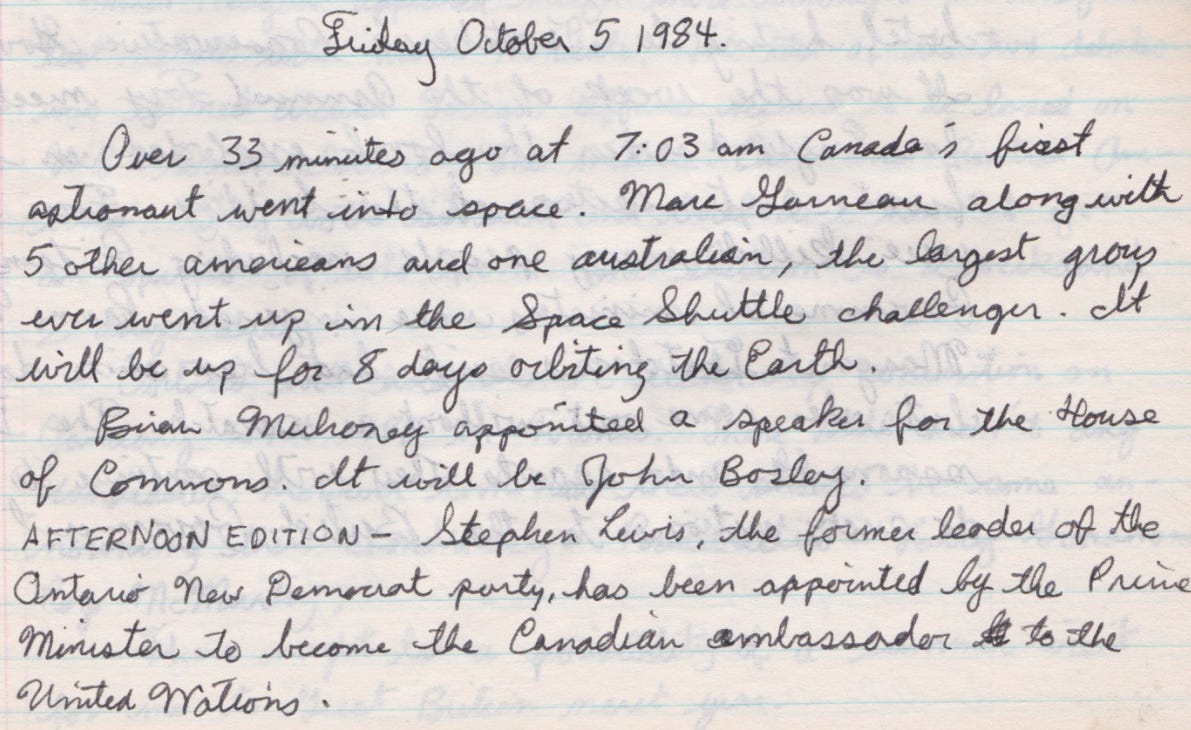 Friday October 5 1984.
Over 33 minutes ago at 7:03 am Canada's first
astronaut went into space. Marc Garneau along with
5 other americans and one australian, the largest group
ever went up in the Space Shuttle challenger. It
will be up for 8 days orbiting the Earth.
Brian Mulroney appointed a speaker for the House
of Commons. It will be John Bosley.
AFTERNOON EDITION - Stephen Lewis, the former leader of the
Ontario New Democrat party, has been appointed by the Prime
Minister to become the Canadian ambassador to the
United Nations.